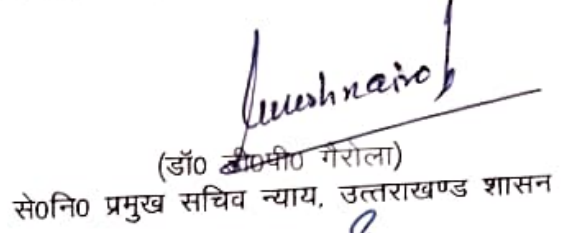 (डॉ० डी०पी० गैरोला)
से०नि० प्रमुख सचिव न्याय, उत्तराखण्ड शासन